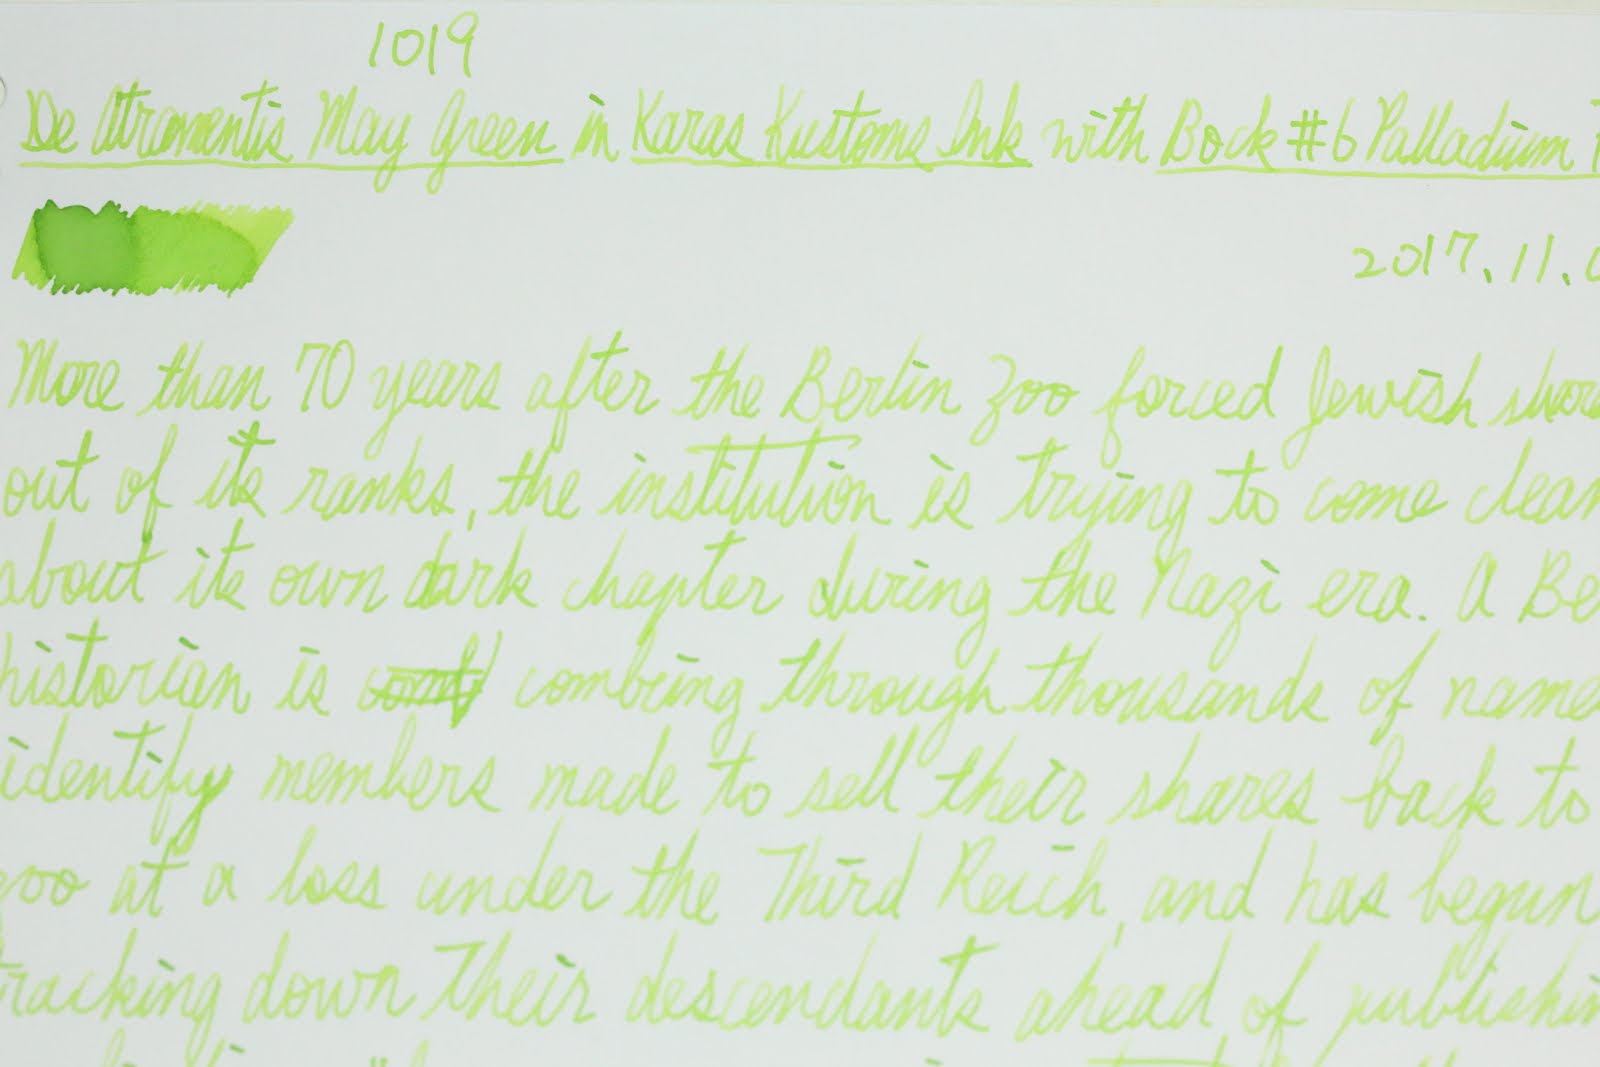 1019
De Atramentis May Green in Karas Kustoms Ink with Bock #6 Palladium
2017.11.
More than 70 years after the Berlin Zoo forced Jewish
out of its ranks, the institution is trying to come clean
about its own dark chapter during the Nazi era. A
historian is combing through thousands of
identify members made to sell their shares back to
zoo at a loss under the Third Reich, and has begun
tracking down their descendants ahead of